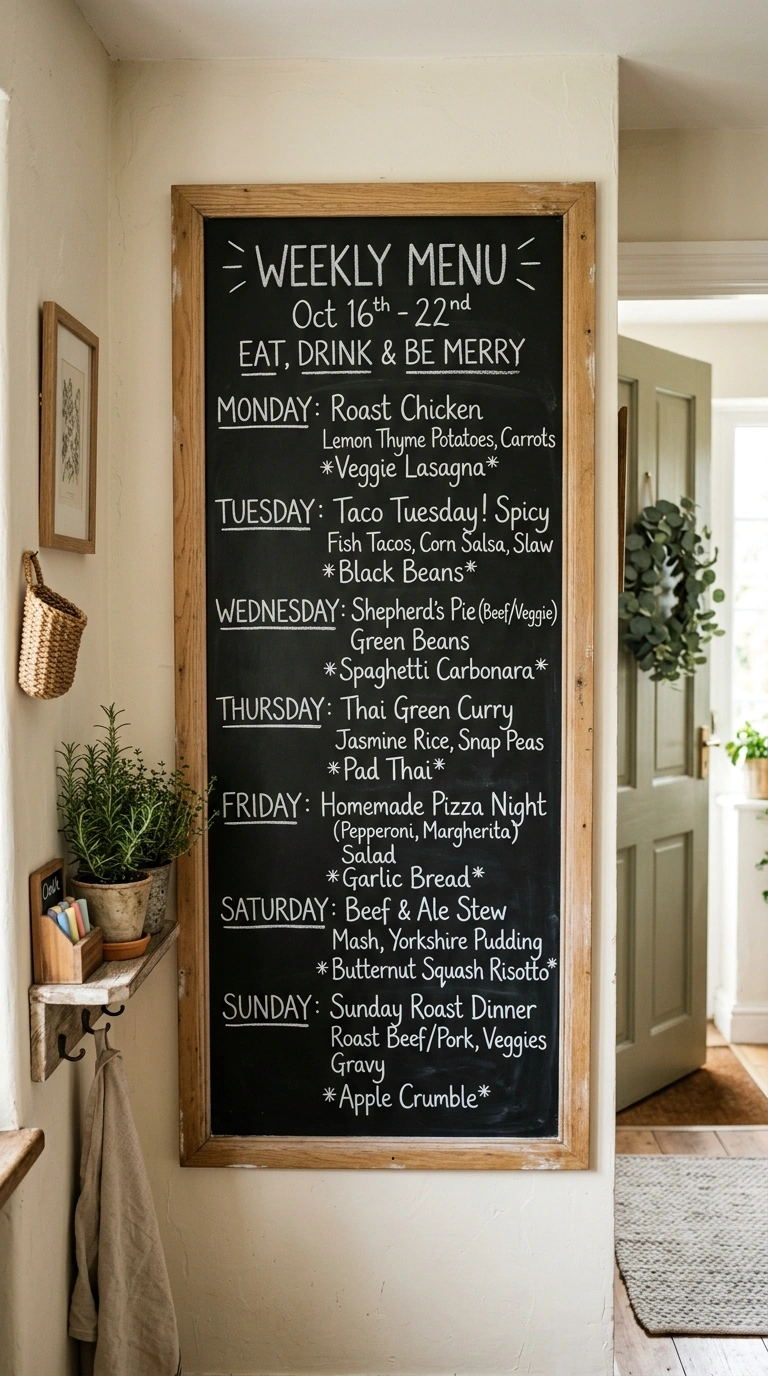 WEEKLY MENU
Oct 16th - 22nd
EAT, DRINK & BE MERRY
MONDAY: Roast Chicken
Lemon Thyme Potatoes, Carrots
*Veggie Lasagna*
TUESDAY: Taco Tuesday! Spicy
Fish Tacos, Corn Salsa, Slaw
*Black Beans*
WEDNESDAY: Shepherd's Pie (Beef/Veggie)
Green Beans
*Spaghetti Carbonara*
THURSDAY: Thai Green Curry
Jasmine Rice, Snap Peas
*Pad Thai*
FRIDAY: Homemade Pizza Night
(Pepperoni, Margherita)
Salad
*Garlic Bread*
SATURDAY: Beef & Ale Stew
Mash, Yorkshire Pudding
*Butternut Squash Risotto*
SUNDAY: Sunday Roast Dinner
Roast Beef/Pork, Veggies
Gravy
*Apple Crumble*